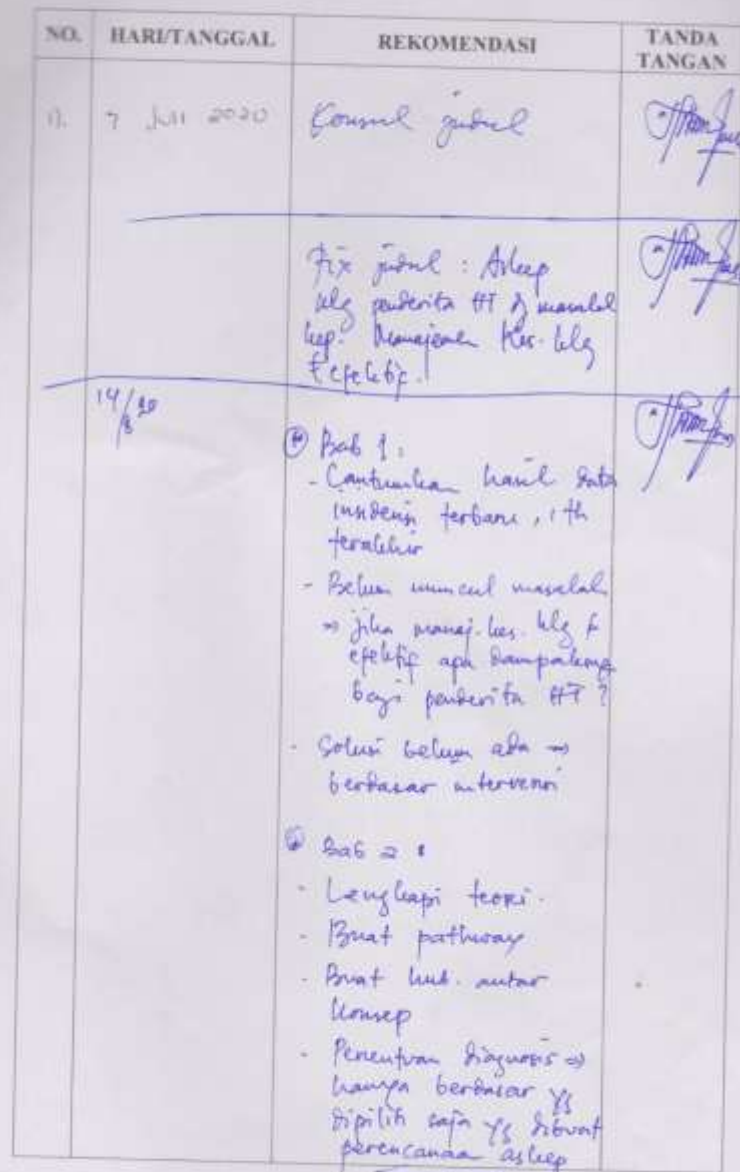 NO. HARI/TANGGAL REKOMENDASI TANDA TANGAN
1). 7 Juli 2020 Konsul judul
Fix judul : Askep
klg penderita HT dg masalah
kep. Manajemen Kes. klg
efektif.
14/8 20
Bab 1 :
- Cantumkan hasil data
insidensi terbaru, 1 th
terakhir
- Belum muncul masalah
⇒ jika manaj. kes. klg
efektif apa dampaknya
bagi penderita HT ?
- Solusi belum ada ⇒
berdasar intervensi
Bab 2 :
- Lengkapi teori.
- Buat pathway
- Buat hub. antar
konsep
- Penentuan diagnosis ⇒
hanya berdasar yg
dipilih saja yg dibuat
perencanaan askep